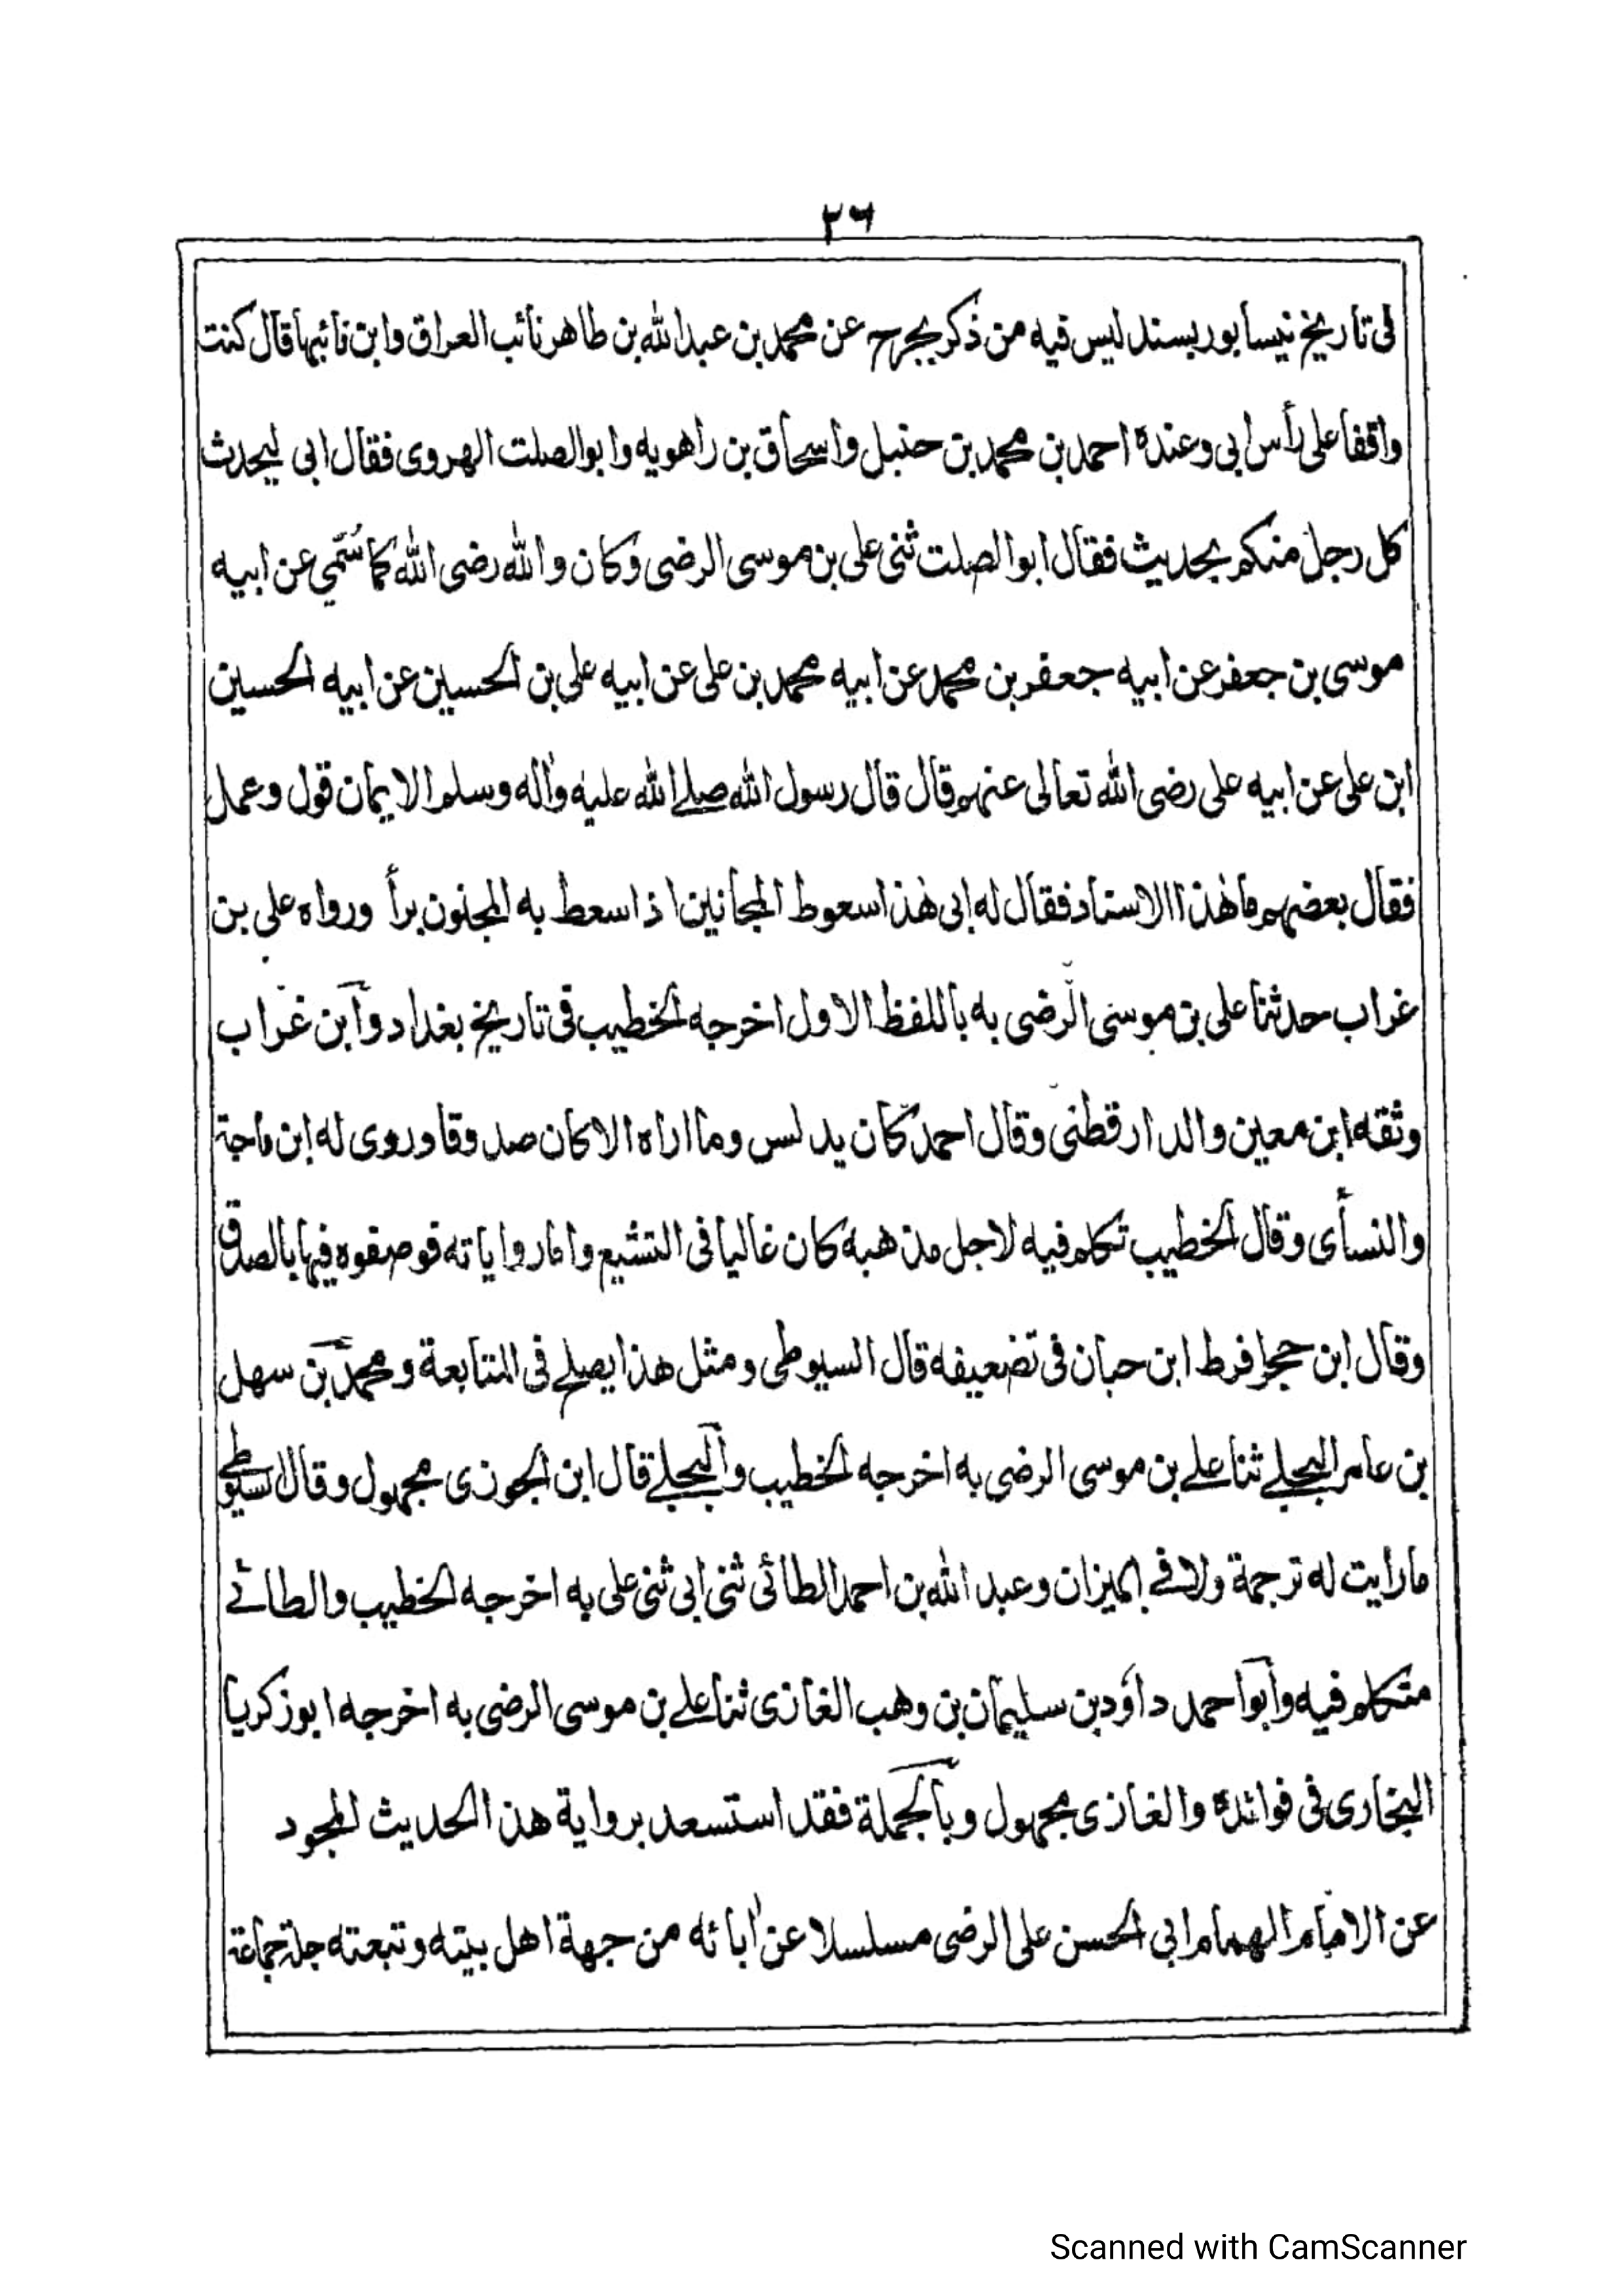 ٣٦
فى تاريخ نيسابور بسند ليس فيه من ذكر بجرح عن محمد بن عبد الله بن طاهر نائب العراق وابن نائبها قال كنت
واقفا على رأس ابى وعنده احمد بن محمد بن حنبل واسحاق بن راهويه وابو الصلت الهروى فقال ابى ليحدث
كل رجل منكم بحديث فقال ابو الصلت ثنى على بن موسى الرضى وكان والله رضى الله كما سُمّي عن ابيه
موسى بن جعفر عن ابيه جعفر بن محمد عن ابيه محمد بن على عن ابيه على بن الحسين عن ابيه الحسين
ابن على عن ابيه على رضى الله تعالى عنهم قال قال رسول الله صلے الله عليه واٰله وسلم الايمان قول وعمل
فقال بعضهم ما هٰذا الاسناد فقال له ابى هٰذا سعوط المجانين اذا سعط به المجنون برأ ورواه على بن
غراب حدثنا على بن موسى الرضى به باللفظ الاول اخرجه الخطيب فى تاريخ بغداد وابن غراب
وثقه ابن معين والدارقطنى وقال احمد كان يدلس وما اراه الا كان صدوقا وروى له ابن ماجة
والنسأى وقال الخطيب تكلم فيه لاجل مذهبه كان غاليا فى التشيع واما رواياته فوصفوه فيها بالصدق
وقال ابن حجر افرط ابن حبان فى تضعيفه قال السيوطى ومثل هذا يصلح فى المتابعة ومحمد بن سهل
بن عامر البجلے ثنا علے بن موسى الرضى به اخرجه الخطيب والبجلے قال ابن الجوزى مجهول وقال السيوطے
ما رايت له ترجمة ولا فے الميزان وعبد الله بن احمد الطائى ثنى ابى ثنى على به اخرجه الخطيب والطائے
متكلم فيه وابو احمد داؤد بن سليمان بن وهب الغازى ثنا علے بن موسى الرضى به اخرجه ابو زكريا
البخارى فى فوائده والغازى مجهول وبالجملة فقد استسعد برواية هذا الحديث المجود
عن الامام الهمام ابى الحسن على الرضى مسلسلا عن اٰبائه من جهة اهل بيته وتبعته جلة جماعة
Scanned with CamScanner